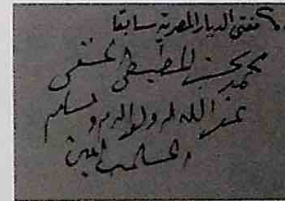 مفتى الديار المصرية سابقا
محمد بخيت المطيعى الحنفى
غفر الله له ولوالديه و
المسلمين أمين